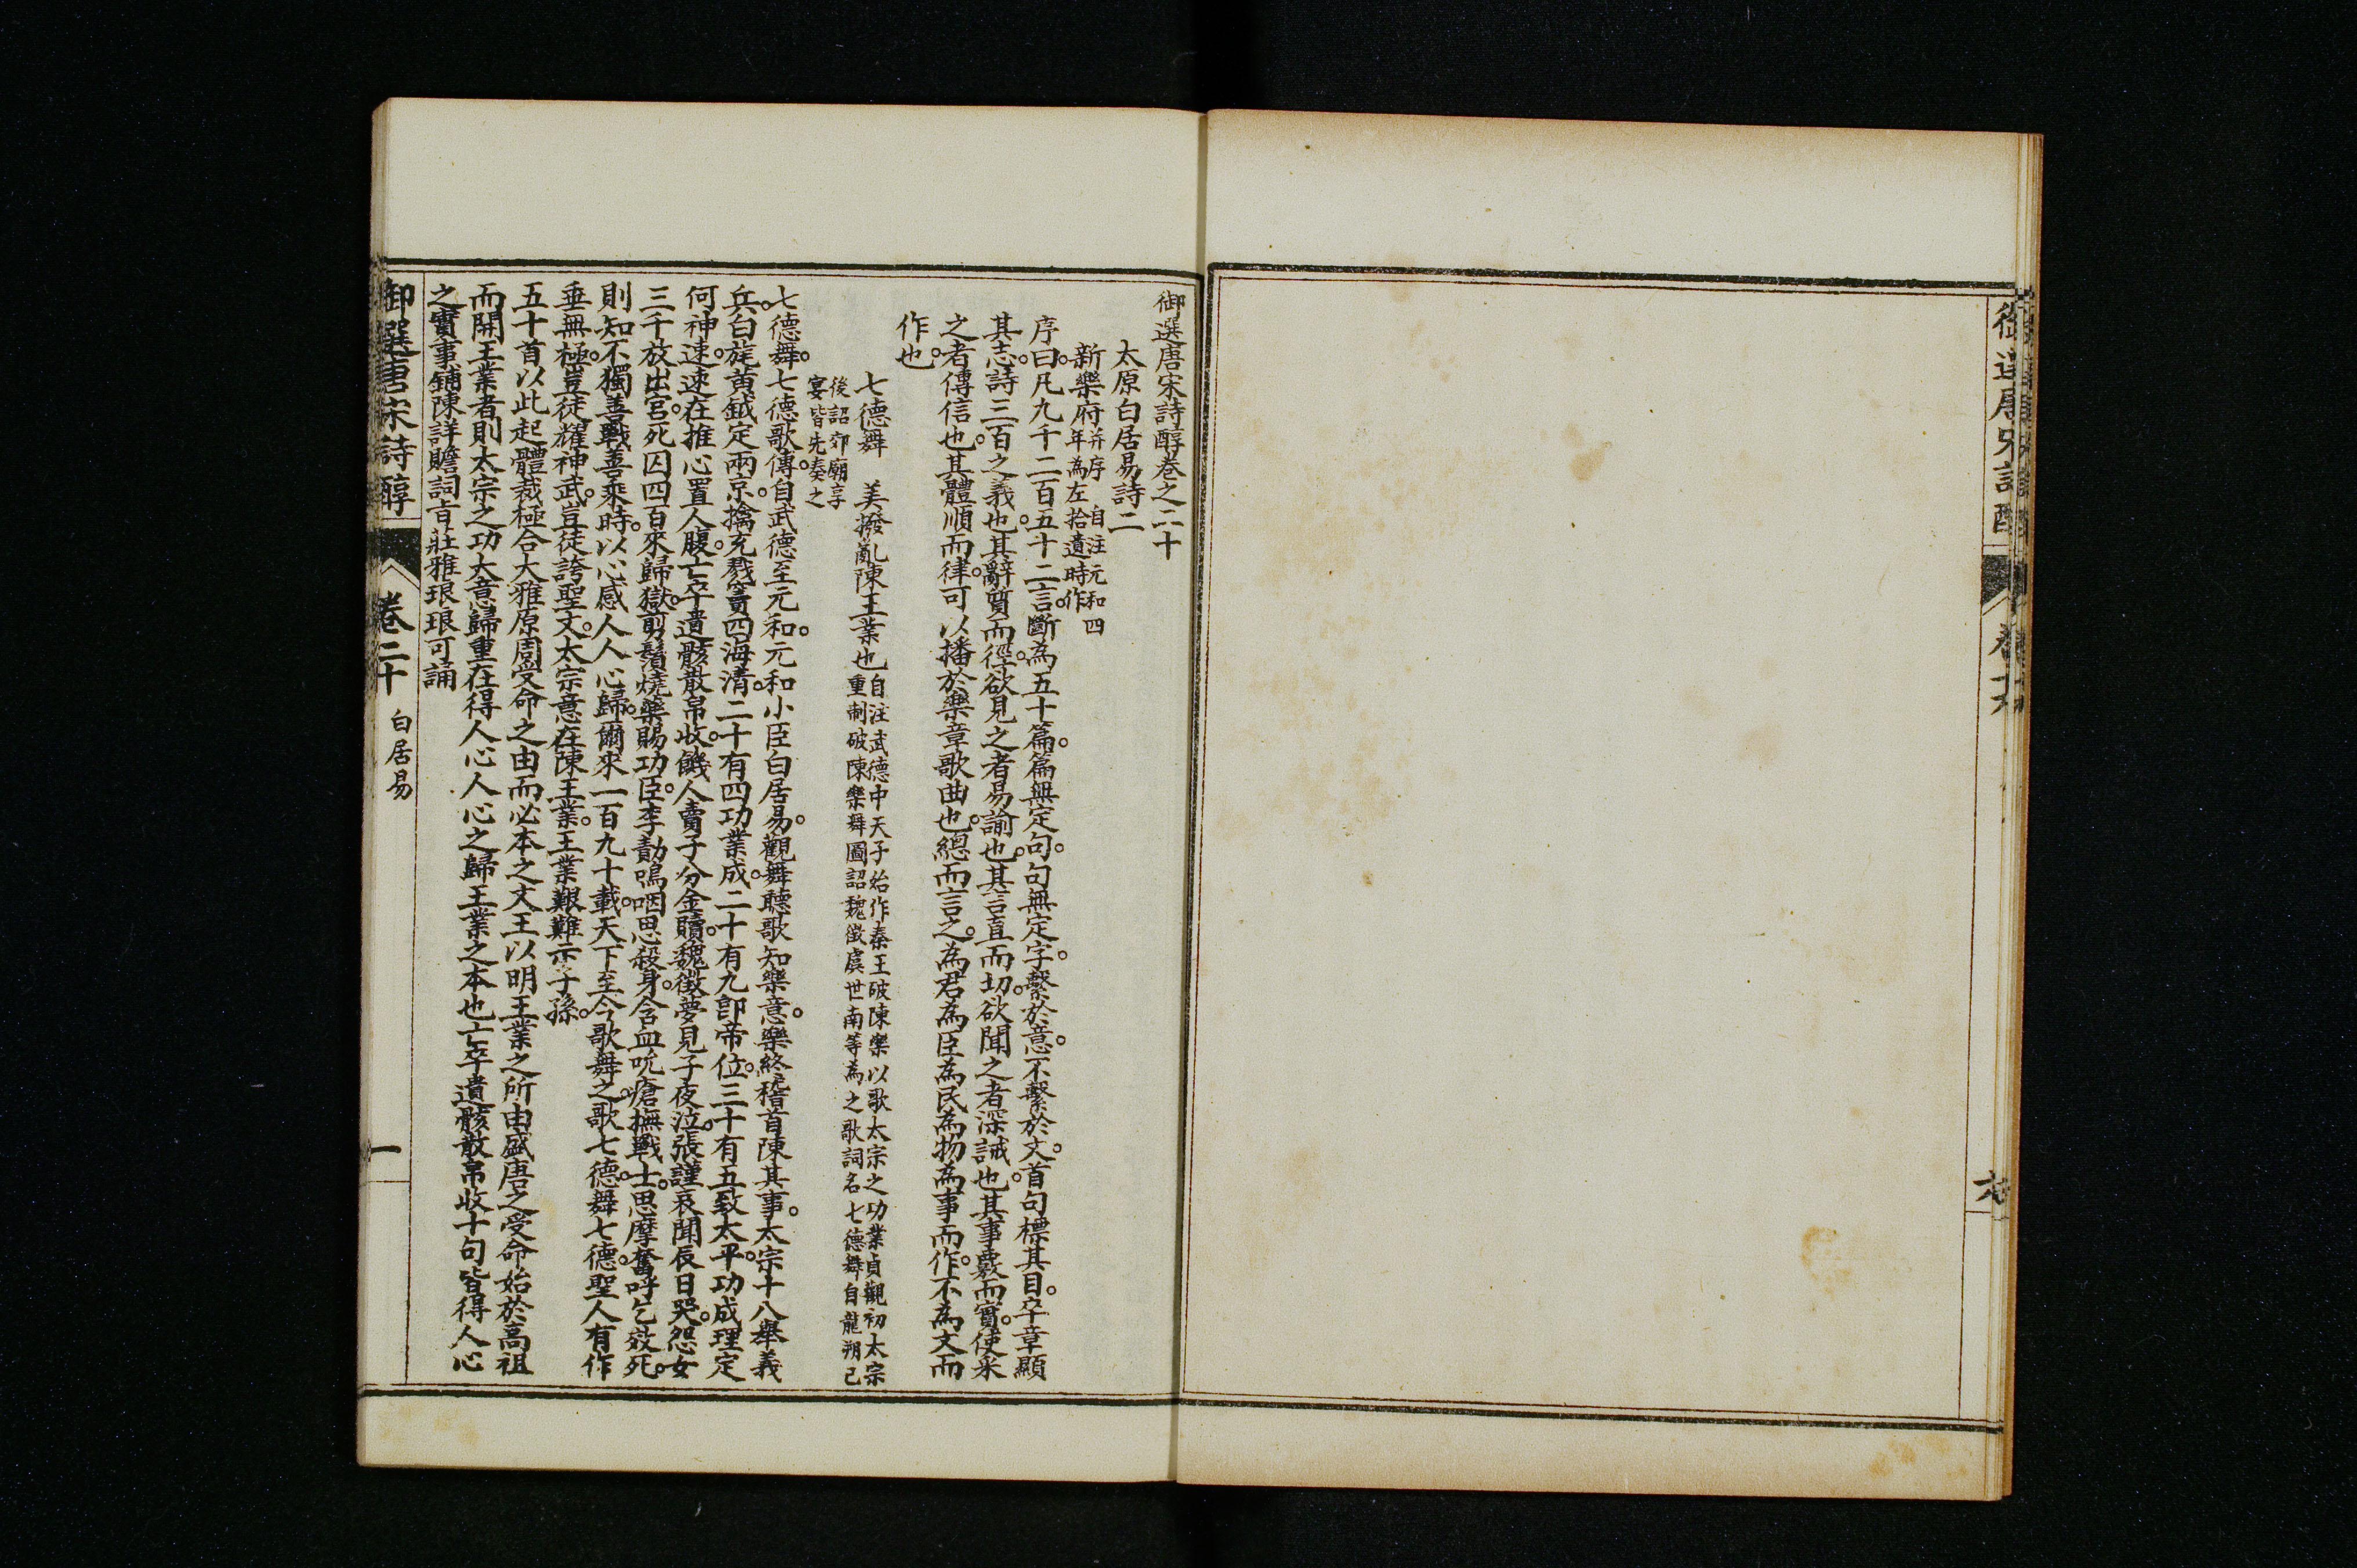 御選唐宋詩醇卷之二十
太原白居易詩二
新樂府并序 自注元和四年為左拾遺時作
序曰。凡九千二百五十二言。斷為五十篇。篇無定句。句無定字。繫於意。不繫於文。首句標其目。卒章顯
其志。詩三百之義也。其辭質而徑。欲見之者易諭也。其言直而切。欲聞之者深誡也。其事覈而實。使采
之者傳信也。其體順而律。可以播於樂章歌曲也。總而言之。為君為臣為民為物為事而作。不為文而
作也。
七德舞 美撥亂陳王業也 自注武德中天子始作秦王破陳樂以歌太宗之功業貞觀初太宗
重制破陳樂舞圖詔魏徵虞世南等為之歌詞名七德舞自龍朔已
後詔郊廟享
宴皆先奏之
七德舞。七德歌。傳自武德至元和。元和小臣白居易。觀舞聽歌知樂意。樂終稽首陳其事。太宗十八舉義
兵。白旄黃鉞定兩京。擒充戮竇四海清。二十有四功業成。二十有九卽帝位。三十有五致太平。功成理定
何神速。速在推心置人腹。亡卒遺骸散帛收。饑人賣子分金贖。魏徵夢見子夜泣。張謹哀聞辰日哭。怨女
三千放出宮。死囚四百來歸獄。剪鬚燒藥賜功臣。李勣嗚咽思殺身。含血吮瘡撫戰士。思摩奮呼乞效死。
則知不獨善戰善乘時。以心感人人心歸。爾來一百九十載。天下至今歌舞之。歌七德。舞七德。聖人有作
垂無極。豈徒耀神武。豈徒誇聖文。太宗意在陳王業。王業艱難示子孫。
五十首以此起體裁極合大雅原周受命之由而必本之文王以明王業之所由盛唐之受命始於高祖
而開王業者則太宗之功大意歸重在得人心人心之歸王業之本也亡卒遺骸散帛收十句皆得人心
之實事鋪陳詳贍詞旨壯雅琅琅可誦
御選唐宋詩醇 卷二十 白居易 一